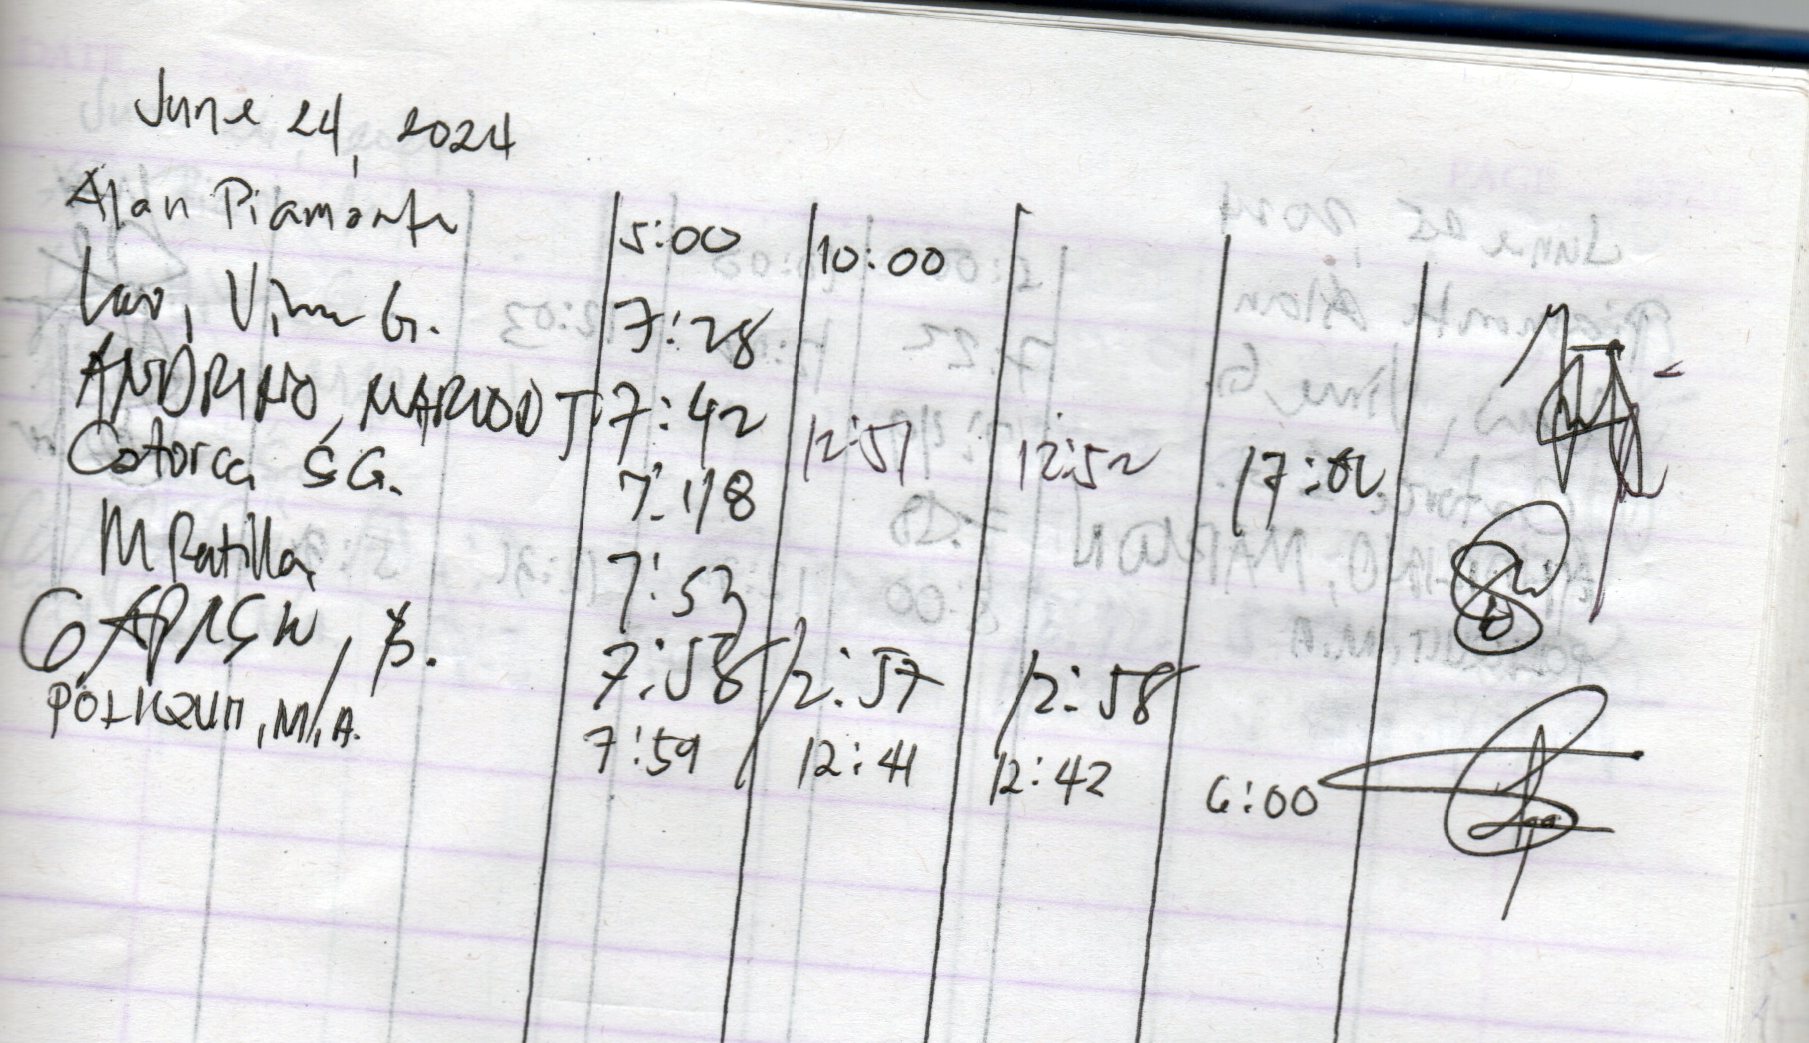 June 24, 2024
Alan Piamonte 5:00 10:00
Luv, Vime G. 7:28
ANDRINO, MARLOD J 7:42 12:51 12:52 17:02
Catorce SG. 7:18
M Ratilla 7:53
GAPASIN, B. 7:58 12:57 12:58
POLIQUIT, M.A. 7:59 12:41 12:42 6:00